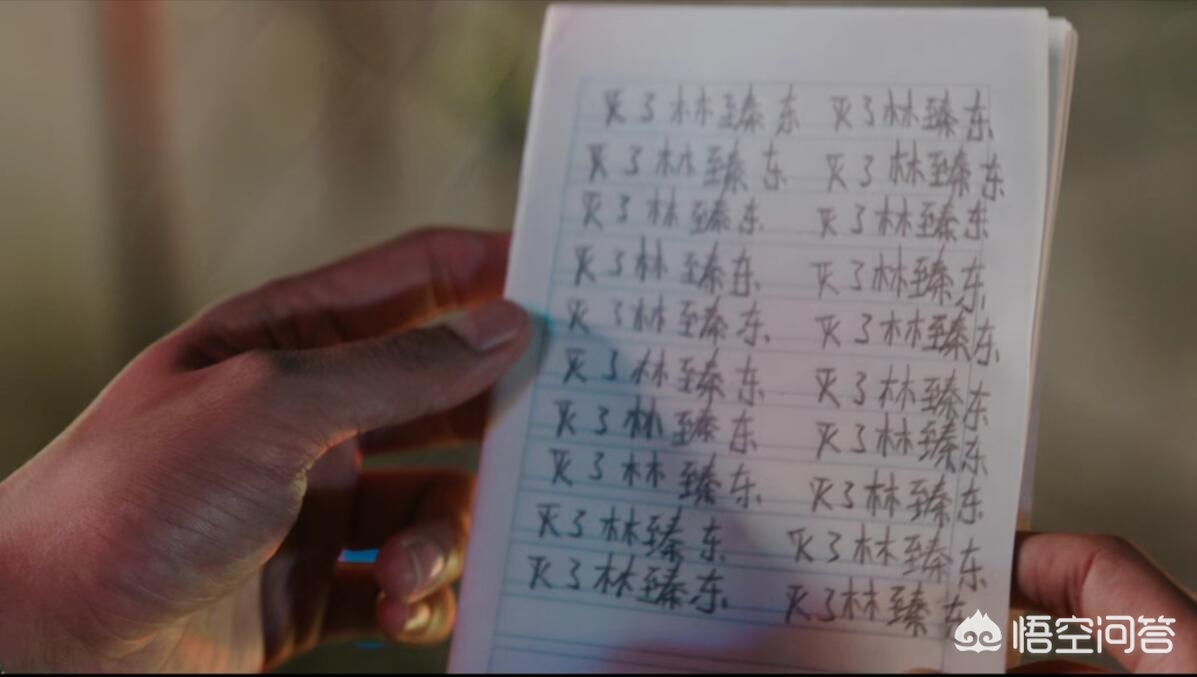 灭了林臻东 灭了林臻东
灭了林臻东 灭了林臻东
灭了林臻东 灭了林臻东
灭了林臻东 灭了林臻东
灭了林臻东 灭了林臻东
灭了林臻东 灭了林臻东
灭了林臻东 灭了林臻东
灭了林臻东 灭了林臻东
灭了林臻东 灭了林臻东
灭了林臻东 灭了林臻东
悟空问答